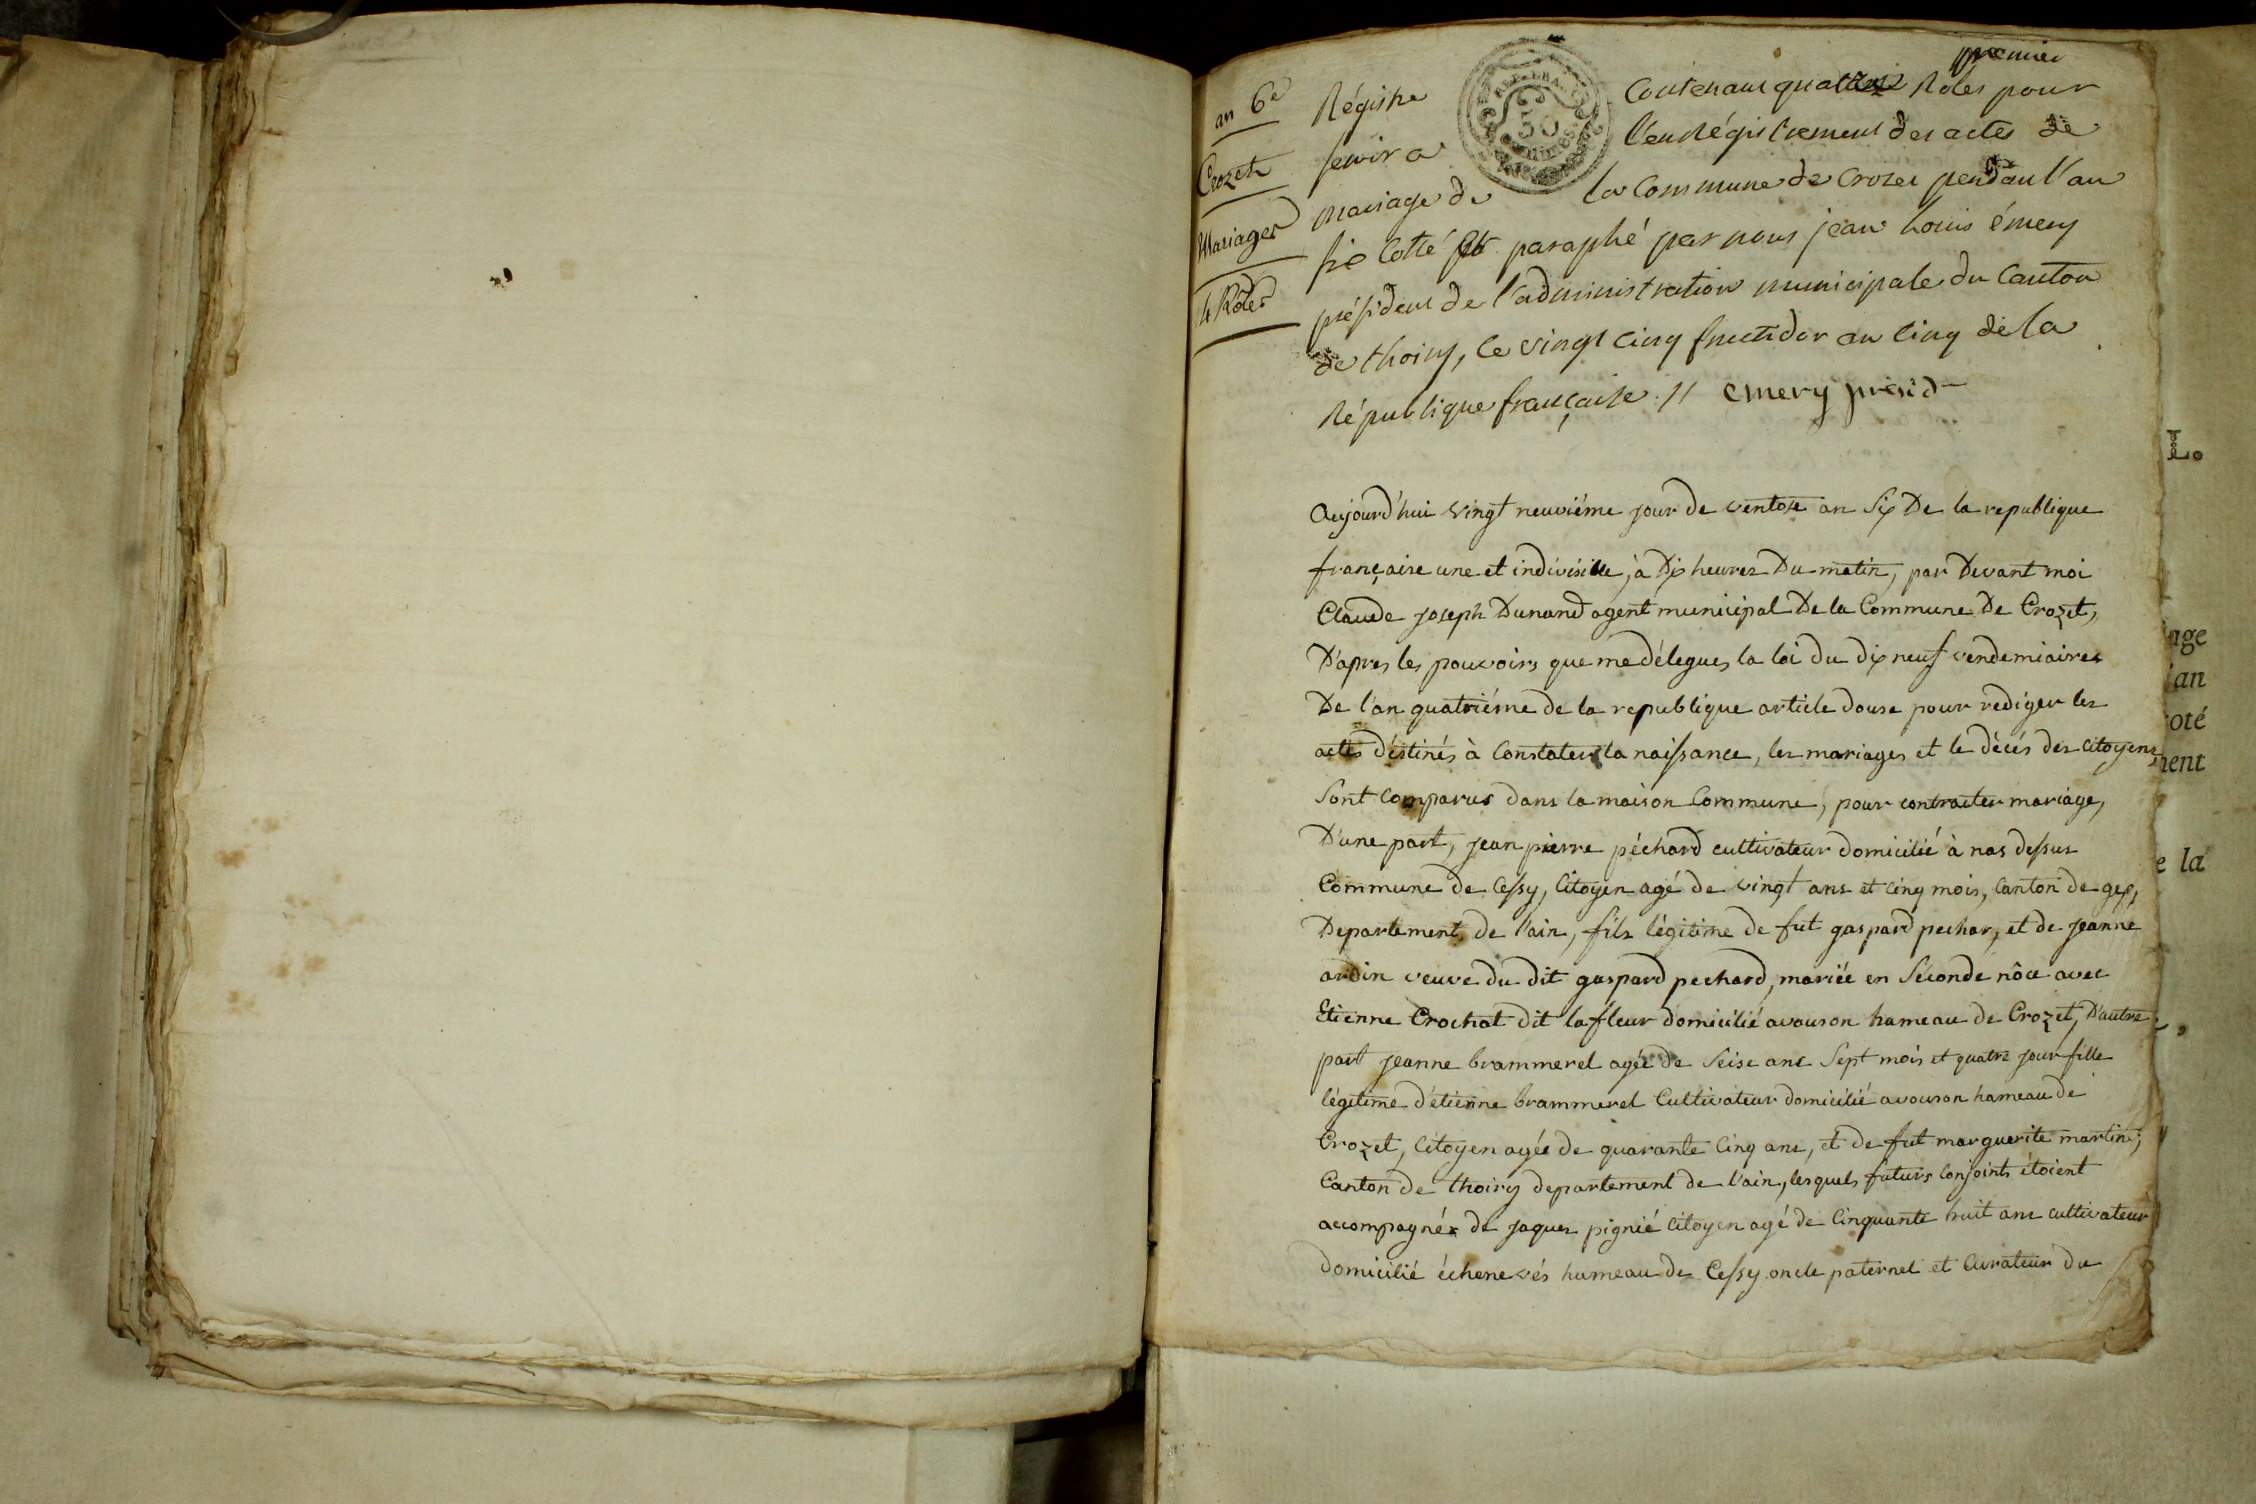 premier
an 6e
Crozet
Mariages
4 Rôles
Régistre contenant quatre Roles pour
servir a l'enrégistrement des actes de
mariage de la Commune de Crozet pendant l'an
six Cotté et paraphé par nous jean louis émery
président de l'administration municipale du Canton
de thoiry, le vingt cinq fructidor an cinq de la
République française // emery présid
50
Aujourd'hui vingt neuviéme jour de ventose an Six De la republique
française une et indivisible, à Dix heures Du matin, par Devant moi
Claude joseph Dunand agent municipal De la Commune De Crozet,
D'apres les pouvoirs que me délegues la loi du dix neuf vendemiaires
De l'an quatriéme de la republique article douse pour rediger les
actes déstinés à Constater la naissance, les mariages et le décés des Citoyens,
Sont comparus dans la maison Commune, pour contracter mariage,
D'une part, jean pierre péchard cultivateur domicilié à nas dessus
Commune de Cessy, Citoyen agé de vingt ans et cinq mois, Canton de gex,
Departement, de l'ain, fils légitime de fut gaspard pechar, et de jeanne
ardin veuve du dit gaspard pechard, mariée en Séconde nôce avec
Etienne Crochat dit lafleur domicilié avouson hameau de Crozet, D'autre
part jeanne brammerel agée de Seise ans Sept mois et quatre jour fille
légitime d'étienne brammerel Cultivateur domicilié avouson hameau de
Crozet, Citoyen agée de quarante Cinq ans, et de fut marguerite martin,
Canton de thoiry departement de l'ain, lesquels futurs Conjoints étoient
accompagnés de jaques pignié Citoyen agé de Cinquante huit ans cultivateur
domicilié échenevés hameau de Cessy oncle paternel et Curateur du
L.
age
'an
oté
ment
e la